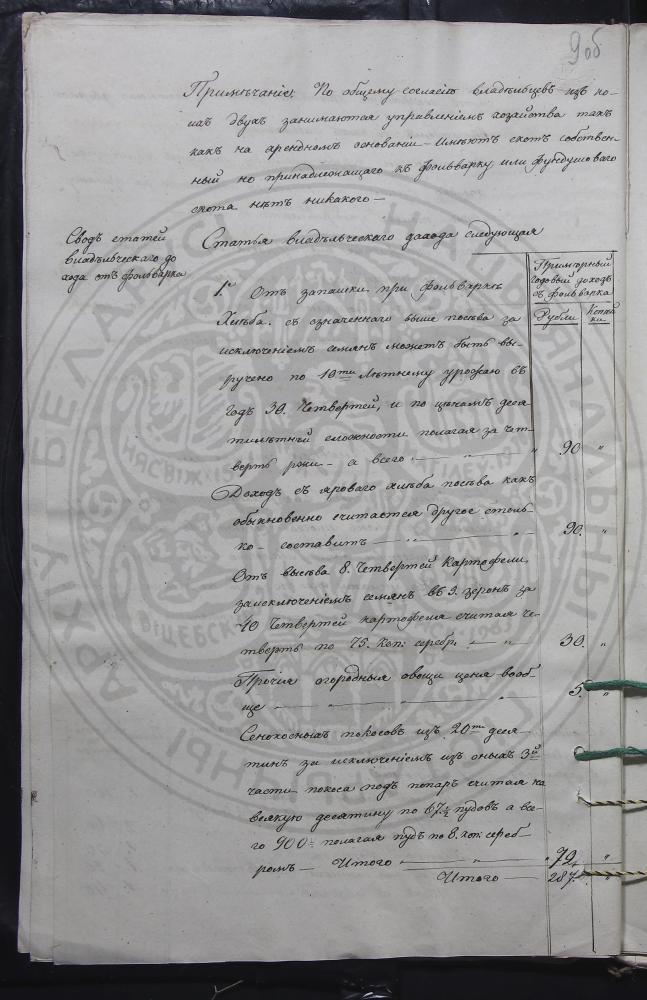 9 об
Примѣчаніе; По общему согласію владѣльцевъ изъ ко-
ихъ двухъ занимаются управленіемъ хозяйства такъ
какъ на арендномъ основаніи – Имѣютъ скотъ собствен-
ный но принадлежащаго къ фольварку или фундушоваго
скота нѣтъ никакого —
Сводъ статей
владѣльческаго до
хода отъ фольварка
Статья владѣльческаго дохода слѣдующая
Примѣрный
годовый доходъ
съ фольварка
Рубли Копѣй
ки
1е Отъ запашки при фольваркѣ
Хлѣба. съ означеннаго выше посѣва за
исключеніемъ семянъ можетъ быть вы-
ручено по 10ти лѣтнему урожаю въ
годъ 30. Четвертей, и по цѣнамъ деся
тилѣтней сложности полагая за чет-
верть ржи – а всего — „ — „ 90 „
Доходъ съ яроваго хлѣба посѣва какъ
обыкновенно считается другое столь-
ко – составитъ — „ — 90. „
Отъ высѣва 8. Четвертей Картофели,
заисключеніемъ семянъ въ 5. зеренъ за
40 Четвертей картофеля считая че-
тверть по 75. коп: серебр. — „ 30. „
Прочія огородныя овощи цѣня вооб-
ще — „ — „ — „ 5. „
Сенокосныхъ покосовъ изъ 20ти деся-
тинъ за исключеніемъ изъ оныхъ 3й
части покоса подъ попаръ считая на
всякую десятину по 67½ пудовъ а все-
го 900: полагая пудъ по 8. коп: сереб-
ромъ — Итого — „ — „ 72. „
Итого — 287. „